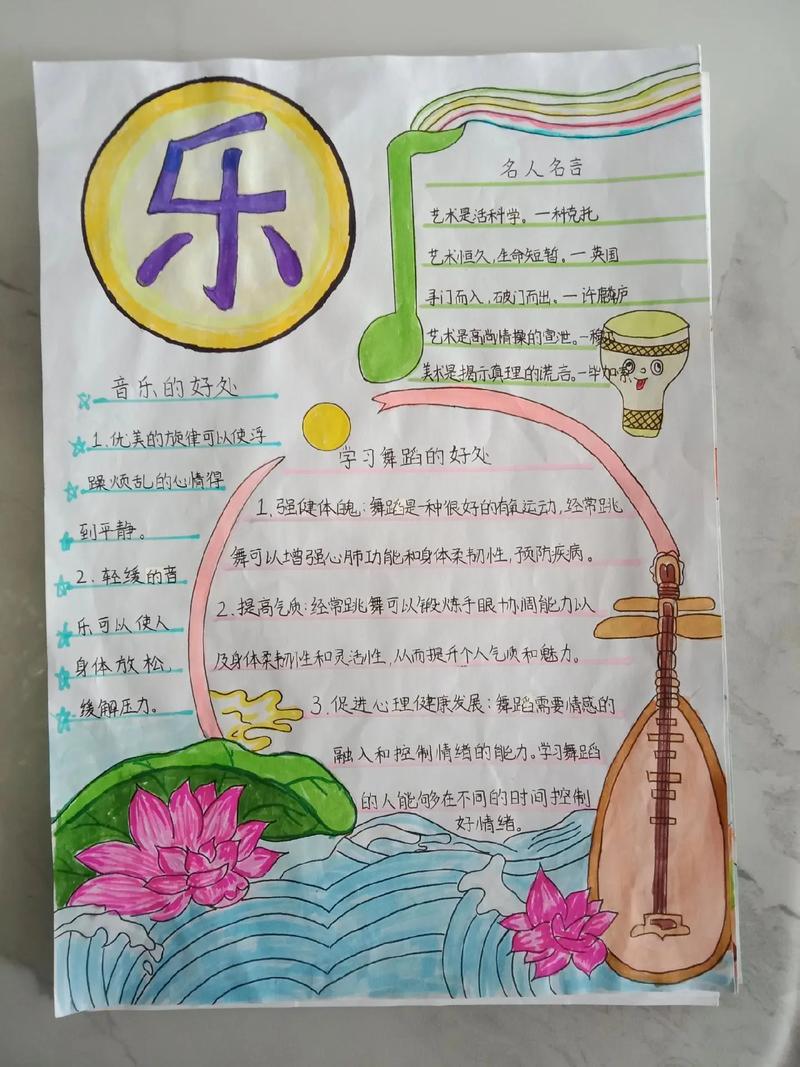 乐
名人名言
艺术是活科学。一种克托
艺术恒久,生命短暂。一英国
手门而入,破门而出。一许麟庐
艺术是高尚情操的宣泄。一穆
美术是揭示真理的谎言。一毕加索
音乐的好处
1.优美的旋律可以使浮
躁烦乱的心情得
到平静。
2.轻缓的音
乐可以使人
身体放松,
缓解压力。
学习舞蹈的好处
1.强健体魄:舞蹈是一种很好的有氧运动,经常跳
舞可以增强心肺功能和身体柔韧性,预防疾病。
2.提高气质:经常跳舞可以锻炼手眼协调能力以
及身体柔韧性和灵活性,从而提升个人气质和魅力。
3.促进心理健康发展:舞蹈需要情感的
融入和控制情绪的能力。学习舞蹈
的人能够在不同的时间控制
好情绪。